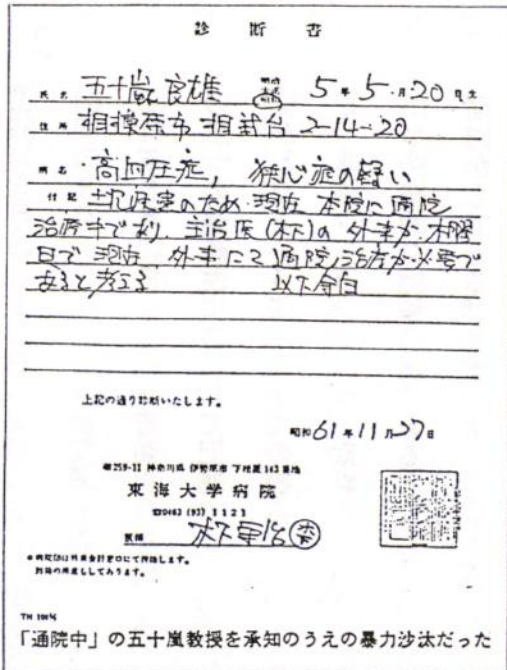 診断書
氏名 五十嵐良雄 明治 大正 昭和 5年5月20日生
住所 相模原市相武台2-14-20
病名 ・高血圧症, 狭心症の疑い
付記 上記疾患のため現在本院に通院
治療中であり、主治医(木下)の外来が木曜
日で現在外来にて通院治療が必要で
あると考える 以下余白
上記の通り診断いたします。
昭和61年11月27日
〒259-11 神奈川県伊勢原市下糟屋143番地
東海大学病院
☎0463 (93) 1121
医師
※病院印は外来会計窓口にて押捺します。
TH 1004
「通院中」の五十嵐教授を承知のうえの暴力沙汰だった